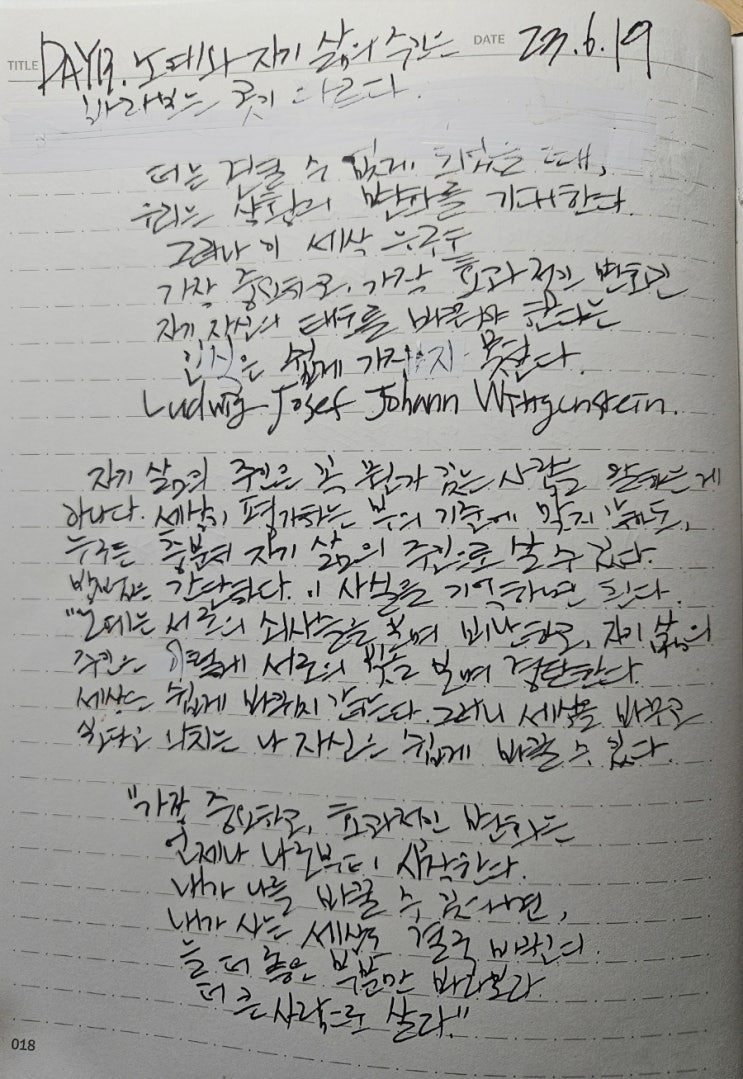 TITLE DAY13. 노예와 자기 삶의 주인은 DATE 23.6.19
바라보는 곳이 다르다.
더는 견딜 수 없게 되었을 때,
우리는 상황의 변화를 기대한다.
그러나 이 세상 누구도
가장 중요하고, 가장 효과적인 변화인
자기 자신의 태도를 바꿔야 한다는
인식은 쉽게 가지지 못한다.
Ludwig Josef Johann Wittgenstein.
자기 삶의 주인은 꼭 뭔가 깊는 사람을 말하는 게
아니다. 세상이 평가하는 부의 기준에 맞지 않아도,
누구든 충분히 자기 삶의 주인으로 살 수 있다.
방법은 간단하다. 이 사실을 기억하면 된다.
"노예는 서로의 쇠사슬을 보며 비난하고, 자기 삶의
주인은 이렇게 서로의 빛을 보며 감탄한다.
세상은 쉽게 바뀌지 않는다. 그러니 세상을 바꾸고
싶다고 외치는 나 자신은 쉽게 바꿀 수 있다.
"가장 중요하고, 효과적인 변화는
언제나 나로부터 시작한다.
내가 나를 바꿀 수 있다면,
내가 사는 세상도 결국 바뀐다.
늘 더 좋은 부분만 바라보라
더 큰 사람으로 살라."
018